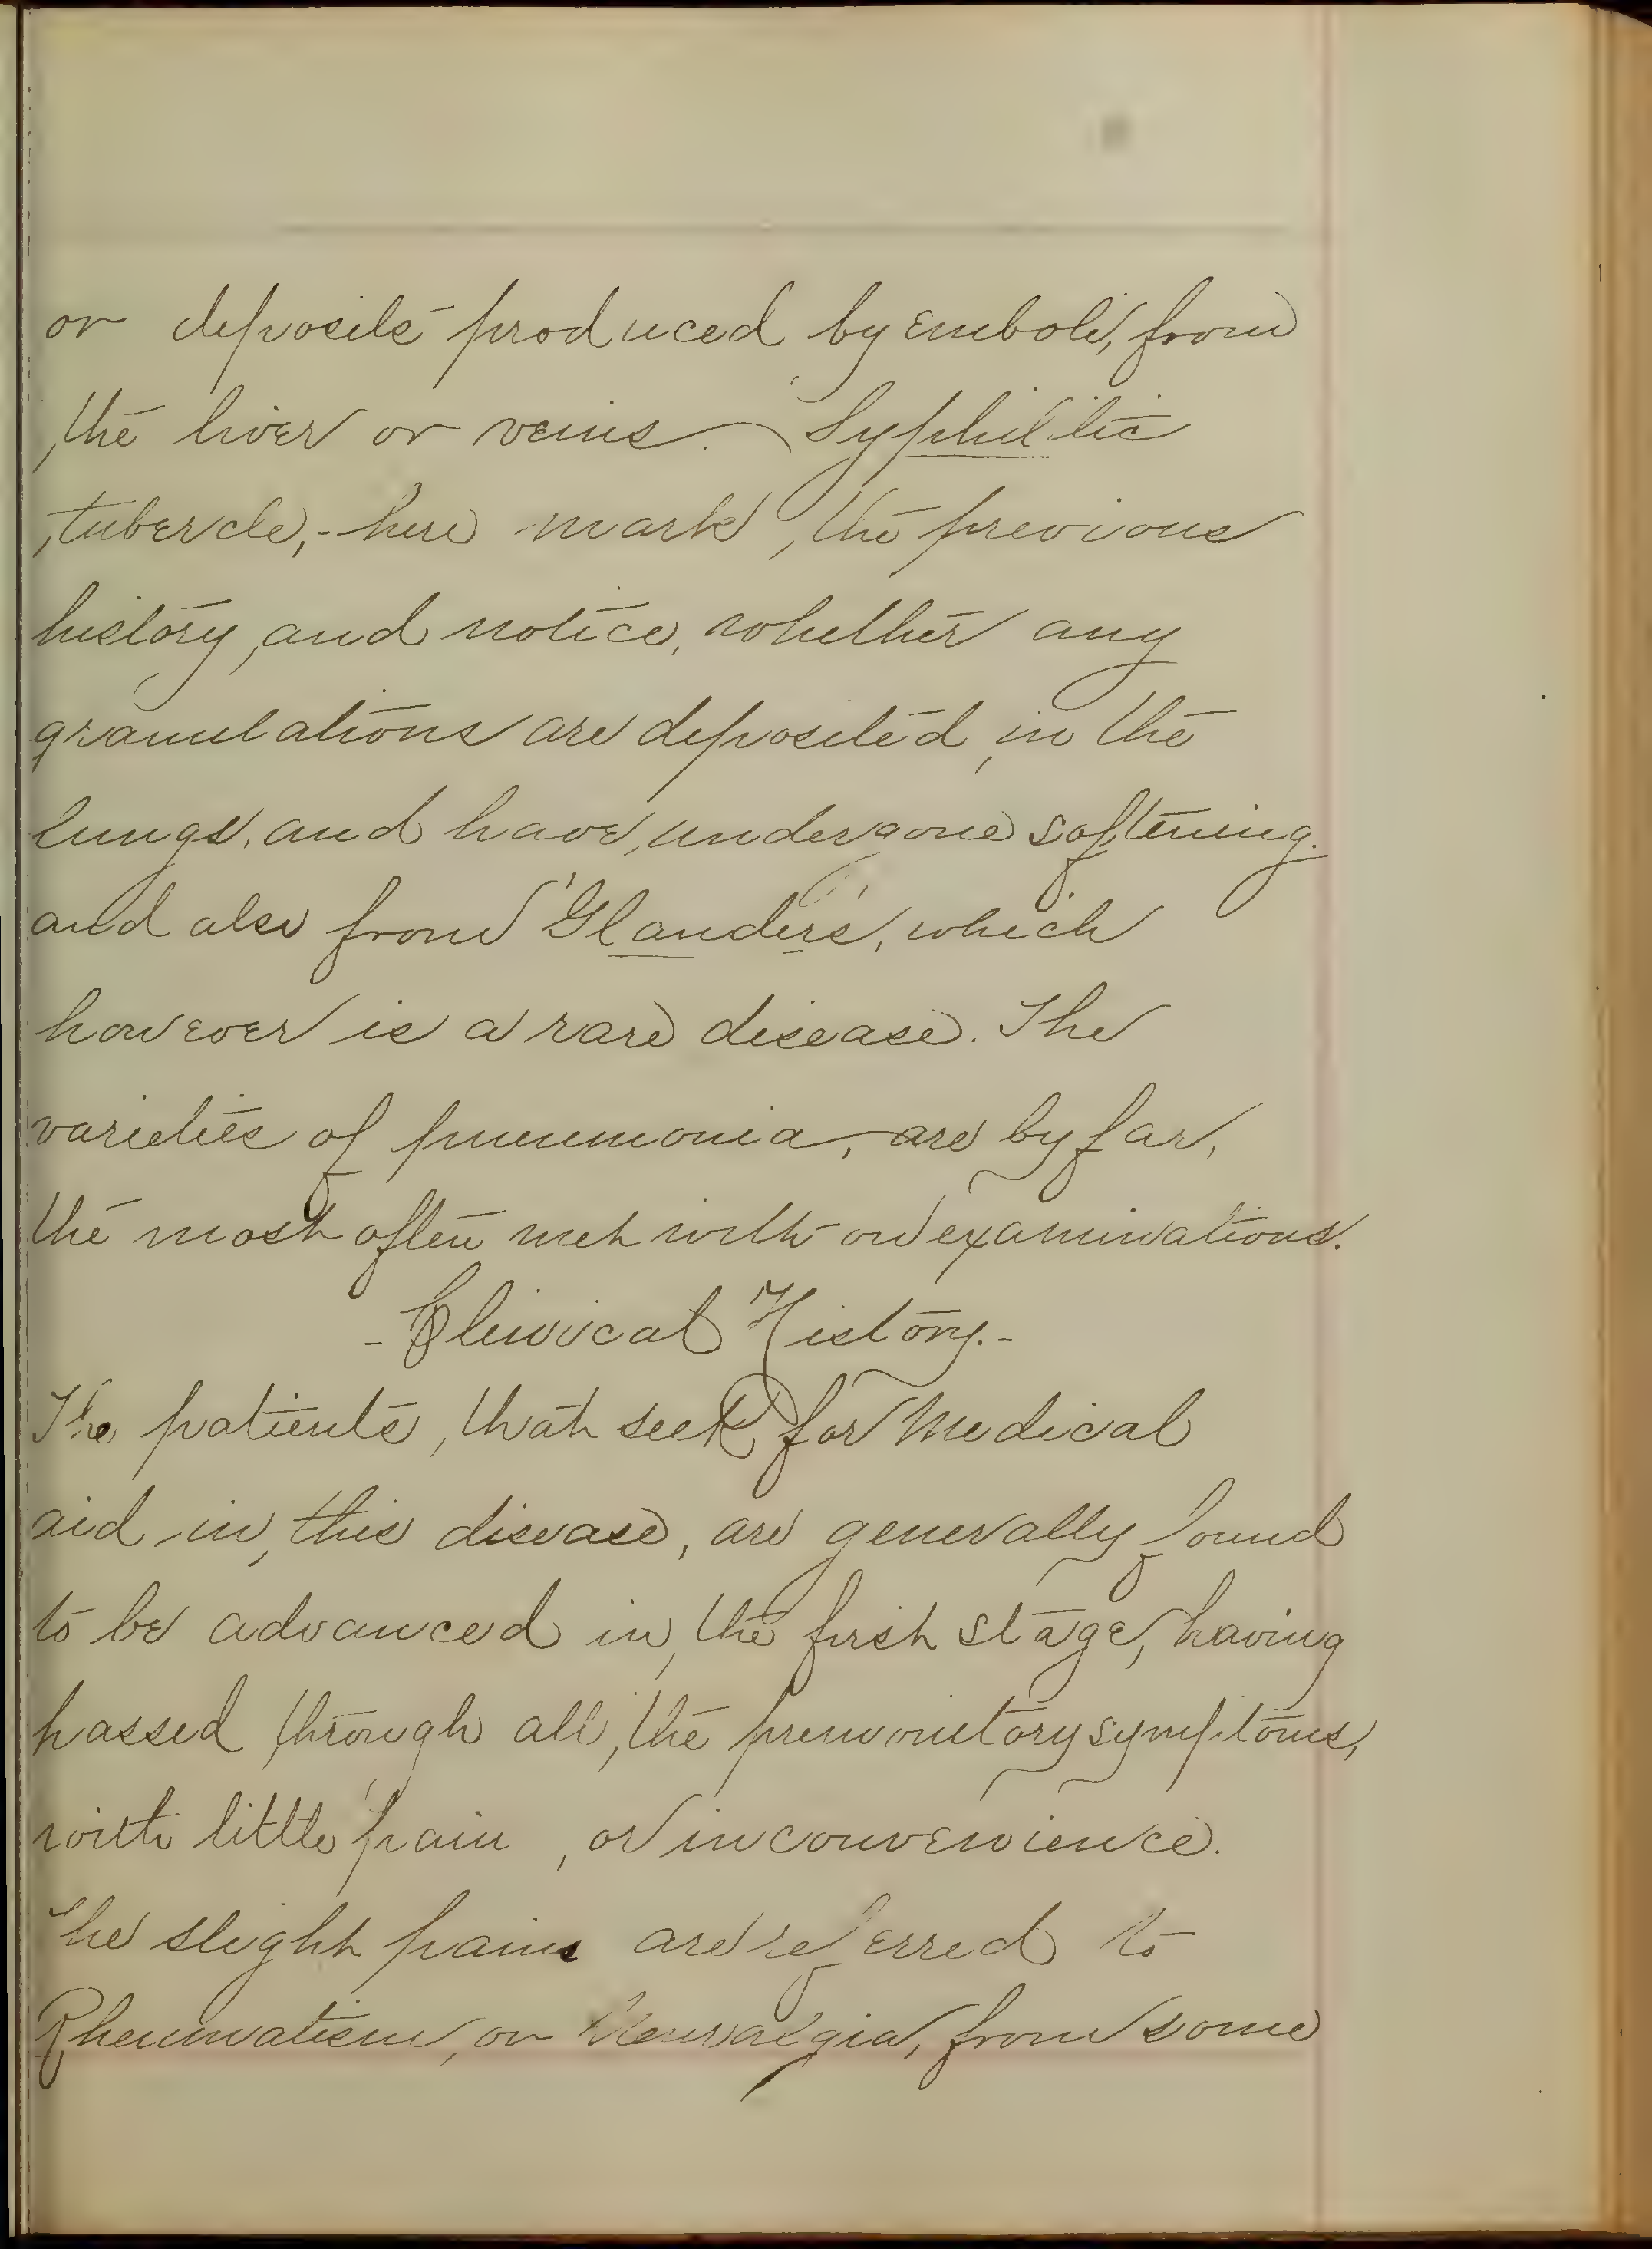 or deposits produced by emboli, from
the liver or veins. Syphilitic
tubercle,- here mark, the previous
history, and notice, whether any
granulations are deposited, in the
lungs, and have, undergone softening.
and also from "Glanders", which
however is a rare disease. The
varieties of pneumonia, are by far,
the most often met with on examinations.
- Clinical History. -
The patients, that seek for medical
aid in, this disease, are generally found
to be advanced in, the first stage, having
passed through all, the premonitory symptoms,
with little pain, or inconvenience.
The slight pains are referred to
Rheumatism, or Neuralgia, from some